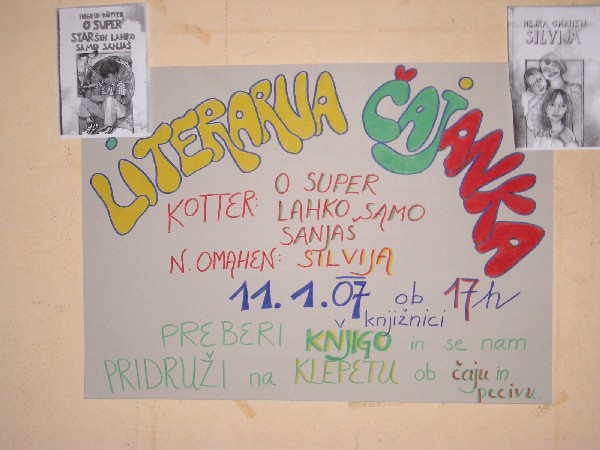 INGRID KÖTTER
O SUPER
STARŠIH LAHKO
SAMO SANJAŠ
NEJKA OMAHEN
SILVIJA
LITERARNA ČAJANKA
KOTTER: O SUPER
LAHKO SAMO
SANJAŠ
N. OMAHEN: SILVIJA
11. 1. 07 ob 17h
v knjižnici
PREBERI KNJIGO in se nam
PRIDRUŽI na KLEPETU ob čaju in
pecivu.